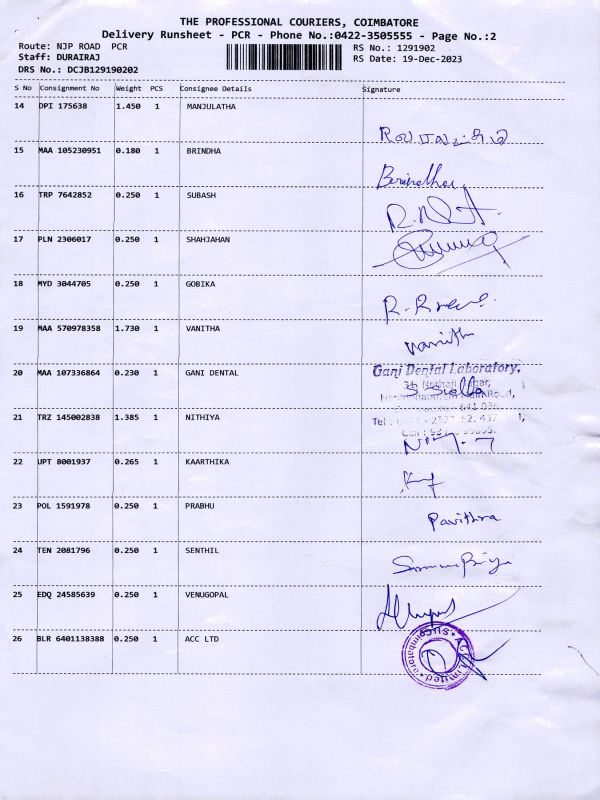 THE PROFESSIONAL COURIERS, COIMBATORE
Delivery Runsheet - PCR - Phone No.:0422-3505555 - Page No.:2
Route: NJP ROAD PCR
RS No.: 1291902
Staff: DURAIRAJ
RS Date: 19-Dec-2023
DRS No.: DCJB129190202
S No Consignment No Weight PCS Consignee Details Signature
14 DPI 175638 1.450 1 MANJULATHA
15 MAA 105230951 0.180 1 BRINDHA
Brindha
16 TRP 7642852 0.250 1 SUBASH
17 PLN 2306017 0.250 1 SHAHJAHAN
18 MYD 3044705 0.250 1 GOBIKA
19 MAA 570978358 1.730 1 VANITHA
Vanitha
20 MAA 107336864 0.230 1 GANI DENTAL
Gani Dental Laboratory,
S Stella
21 TRZ 145002838 1.385 1 NITHIYA
22 UPT 8001937 0.265 1 KAARTHIKA
23 POL 1591978 0.250 1 PRABHU
Pavithra
24 TEN 2081796 0.250 1 SENTHIL
25 EDQ 24585639 0.250 1 VENUGOPAL
26 BLR 6401138388 0.250 1 ACC LTD